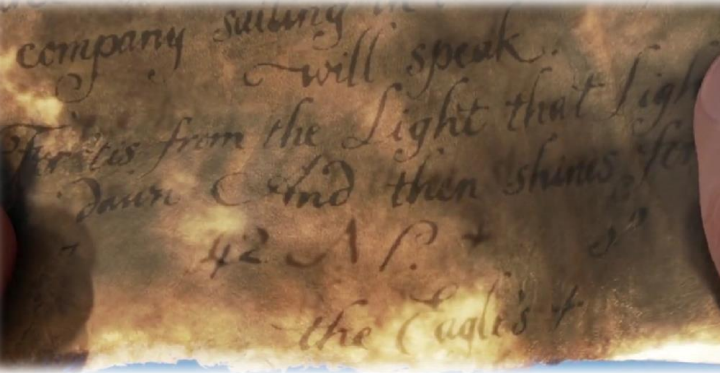 company sailing in
will speak.
For tis from the Light that Ligh
dawn And then shines for
42 A
the Eagle's